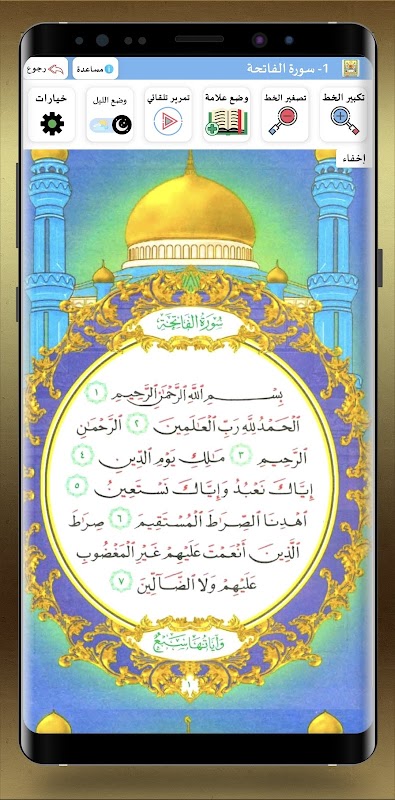 1- سورة الفاتحة
مساعدة
رجوع
تكبير الخط
تصغير الخط
وضع علامة
تمرير تلقائي
وضع الليل
خيارات
إخفاء
سُورَةُ الفَاتِحَةِ
بِسْمِ اللَّهِ الرَّحْمَٰنِ الرَّحِيمِ ١
الْحَمْدُ لِلَّهِ رَبِّ الْعَالَمِينَ ٢ الرَّحْمَٰنِ
الرَّحِيمِ ٣ مَالِكِ يَوْمِ الدِّينِ ٤
إِيَّاكَ نَعْبُدُ وَإِيَّاكَ نَسْتَعِينُ ٥
اهْدِنَا الصِّرَاطَ الْمُسْتَقِيمَ ٦ صِرَاطَ
الَّذِينَ أَنْعَمْتَ عَلَيْهِمْ غَيْرِ الْمَغْضُوبِ
عَلَيْهِمْ وَلَا الضَّالِّينَ ٧
وَآيَاتُهَا سَبْعٌ
١
٢